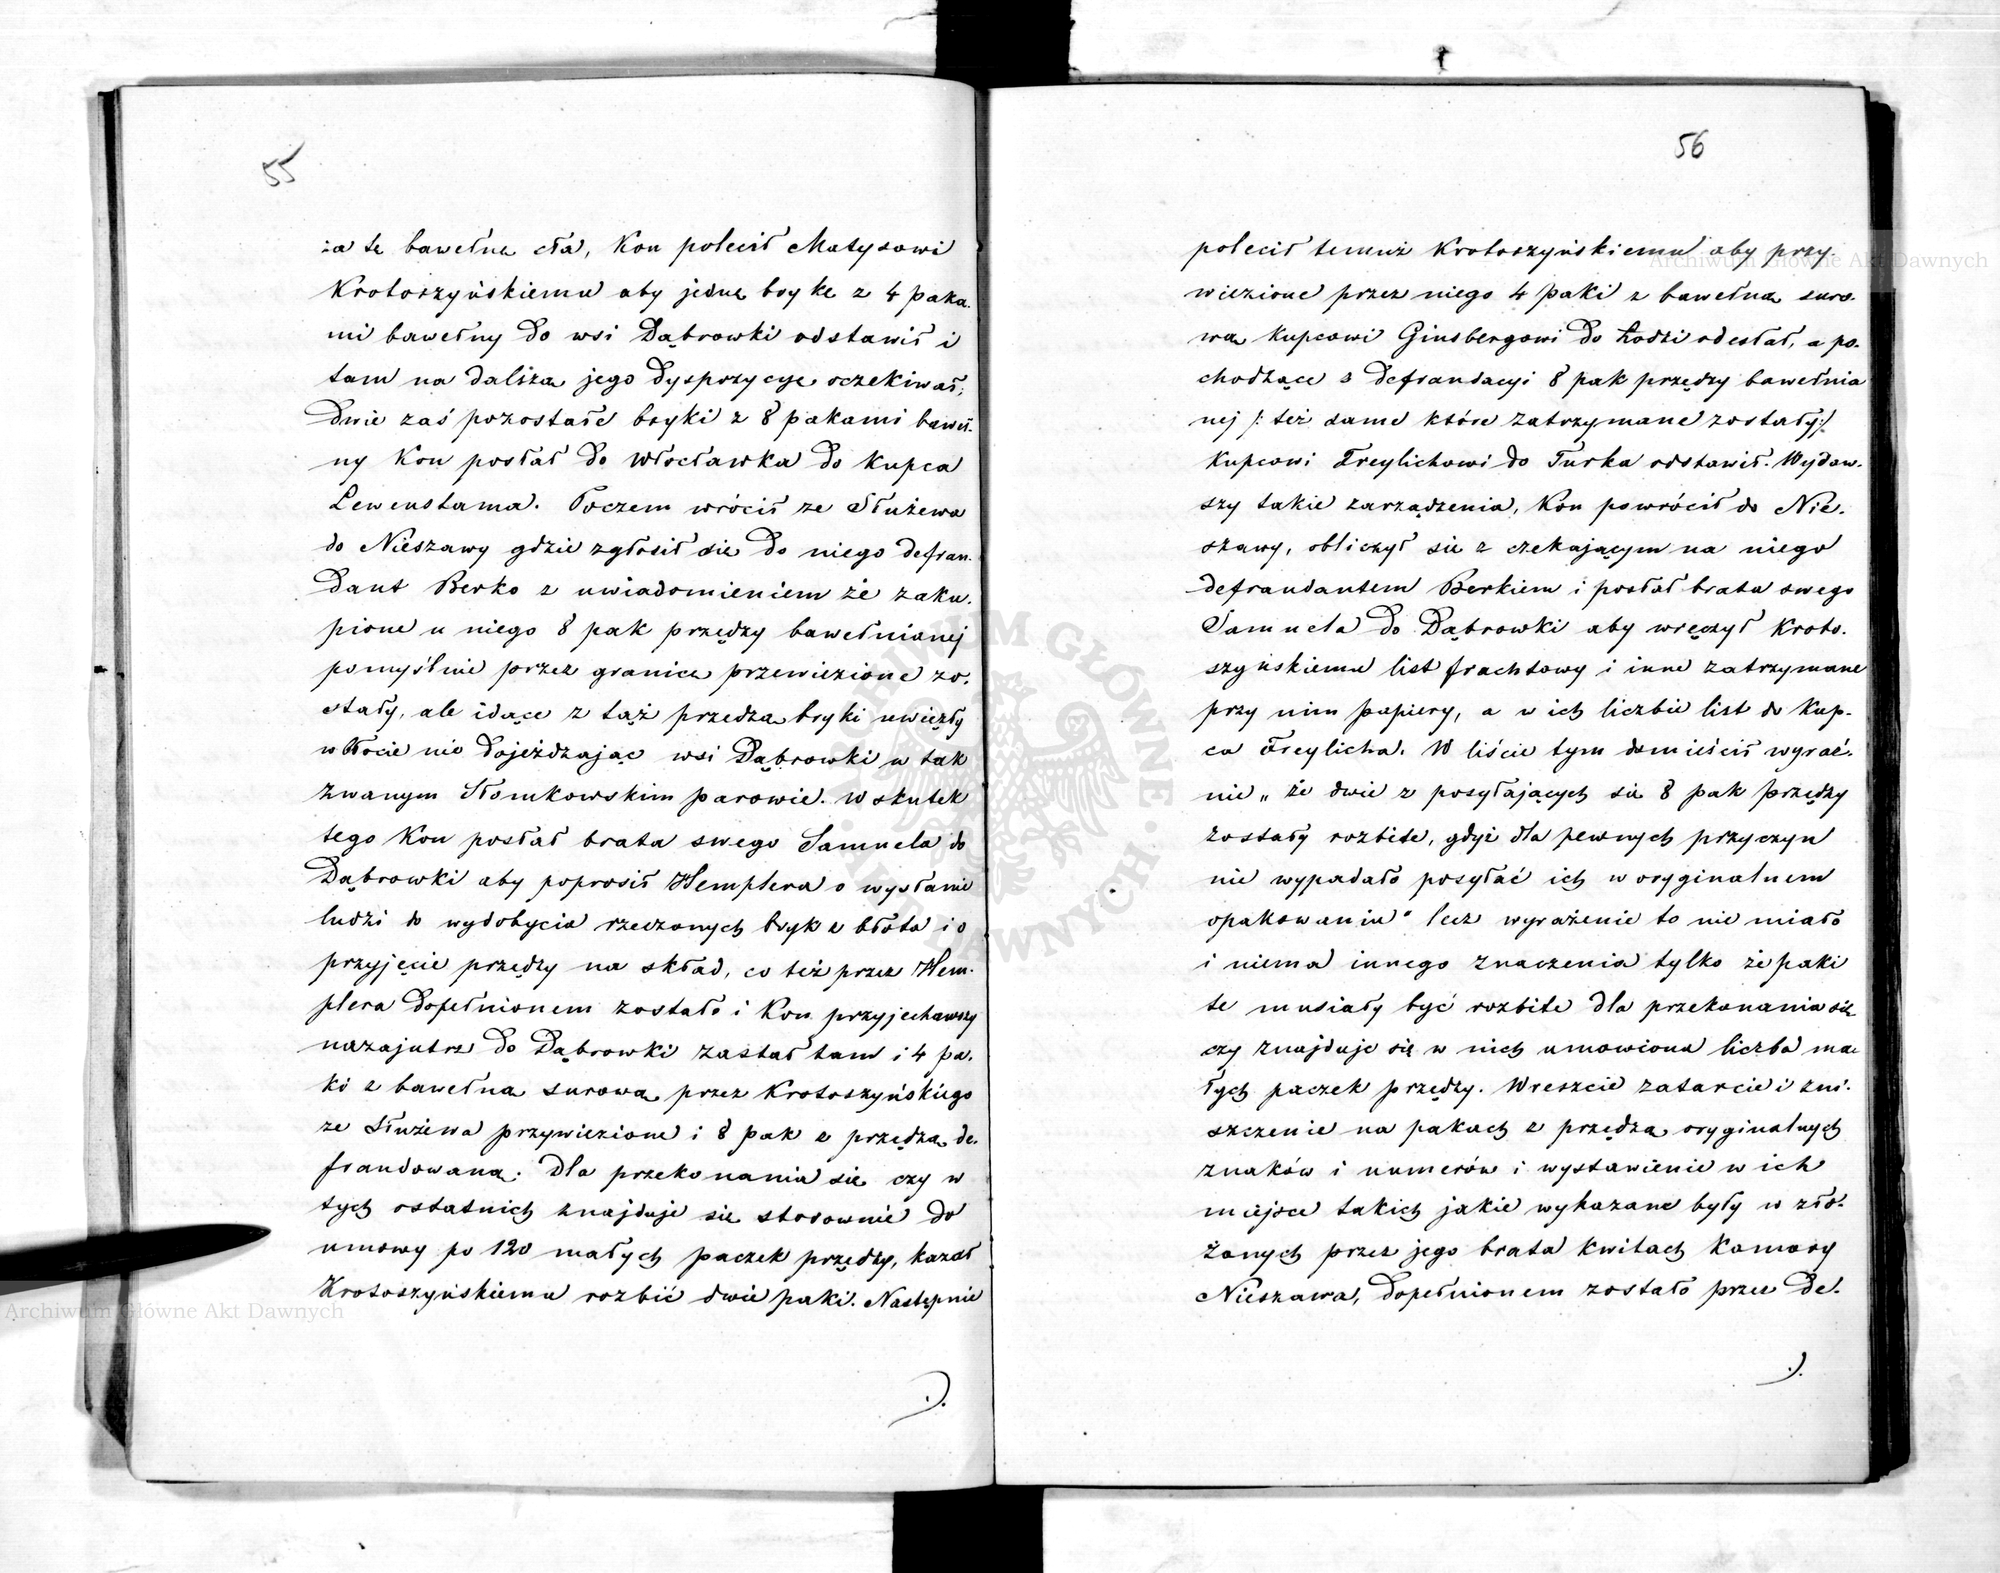 55
za tę bawełnę cła, Kon polecił Matysowi
Krotoszyńskiemu aby jedną brykę z 4 paka-
mi bawełny do wsi Dąbrowki odstawił i
tam na dalszą jego dyspozycyę oczekiwał;
Dwie zaś pozostałe bryki z 8 pakami baweł-
ny Kon posłał do Włocławka do kupca
Lewenstama. Poczem wrócił ze Służewa
do Nieszawy gdzie zgłosił się do niego defrau-
dant Berko z uwiadomieniem że zaku-
pione u niego 8 pak przędzy bawełnianej
pomyślnie przez granicę przewiezione zo-
stały, ale idące z tąż przędzą bryki uwięzły
w błocie nie dojeżdzając wsi Dąbrowki w tak
zwanym Słomkowskim parowie. W skutek
tego Kon posłał brata swego Samuela do
Dąbrowki aby poprosił Hemplera o wysłanie
ludzi do wydobycia rzeczonych bryk z błota i o
przyjęcie przędzy na skład, co też przez Hem-
plera dopełnionem zostało i Kon przyjechawszy
nazajutrz do Dąbrowki zastał tam i 4 pa-
ki z bawełną surową przez Krotoszyńskiego
ze Służewa przywiezione i 8 pak z przędzą de-
fraudowaną. Dla przekonania się czy w
tych ostatnich znajduje się stosownie do
umowy po 120 małych paczek przędzy, kazał
Krotoszyńskiemu rozbić dwie paki. Następnie
56
polecił temuż Krotoszyńskiemu aby przy-
wiezione przez niego 4 paki z bawełną suro-
wą kupcowi Ginsbergowi do Łodzi odesłał, a po-
chodzące z defraudacyi 8 pak przędzy bawełnia
nej /: też same które zatrzymane zostały:/
kupcowi Freylichowi do Turka odstawił. Wydaw-
szy takie zarządzenia, Kon powrócił do Nie-
szawy, obliczył się z czekającym na niego
defraudantem Berkiem i posłał brata swego
Samuela do Dąbrowki aby wręczył Kroto-
szyńskiemu list frachtowy i inne zatrzymane
przy nim papiery, a w ich liczbie list do kup-
ca Freylicha. W liście tym domieścił wyraź-
nie „że dwie z posyłających się 8 pak przędzy
zostały rozbite, gdyż dla pewnych przyczyn
nie wypadało posyłać ich w oryginalnem
opakowaniu" lecz wyrażenie to nie miało
i niema innego znaczenia tylko że paki
te musiały być rozbite dla przekonania się
czy znajduje się w nich umowiona liczba ma-
łych paczek przędzy. Wreszcie zatarcie i zni-
szczenie na pakach z przędzą oryginalnych
znaków i numerów i wystawienie w ich
miejsce takich jakie wykazane były w zło-
żonych przez jego brata kwitach Komory
Nieszawa, dopełnionem zostało przez de-
Archiwum Główne Akt Dawnych
Archiwum Główne Akt Dawnych